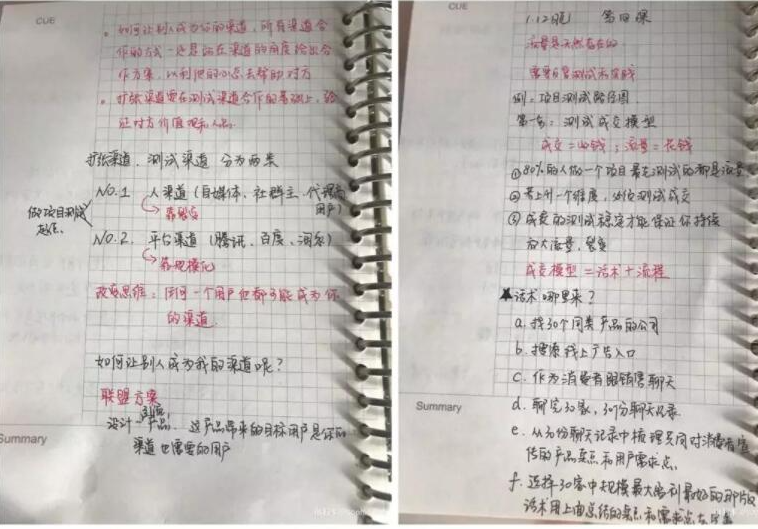 CUE
• 如何让别人成为你的渠道，所有渠道合
作的方式一定是站在渠道的角度给出合
作方案，以利他的心态去帮助对方
• 扩张渠道要在测试渠道合作的基础上，验
证对方价值观和人品。
扩张渠道、测试渠道 分为两类
做项目测试
NO.1 人渠道（自媒体、社群主、代理商
用户）
NO.2. 平台渠道（腾讯、百度、
靠规模化
改变思维：任何一个用户他都可能成为你
的渠道.
如何让别人成为我的渠道呢？
联盟方案
设计一 产品. 这产品带来的目标用户是你的
渠道也需要的用户
Summary
CUE
1.12日 第四课
流量是天然存在的
需要日复测试和实践
例：项目测试路径图
第一步：测试成交模型
成交=收钱；流量=花钱
①80%的人做一个项目最先测试的都是流量
②爬上升一个维度，必须测试成交
③成交的测试稳定才能保证你持续
放大流量，裂变
成交模型=话术+流程
★话术哪里来？
a. 找30个同类产品的公司
b. 搜索线上广告入口
c. 作为消费者跟销售聊天
d. 聊完30家，30份聊天记录
e. 从30份聊天记录中梳理共同对消费者宣
传的产品卖点和用户需求点.
f. 选择30家中规模最大盈利最好的那版
话术用上面总结的卖点和需求点
Summary